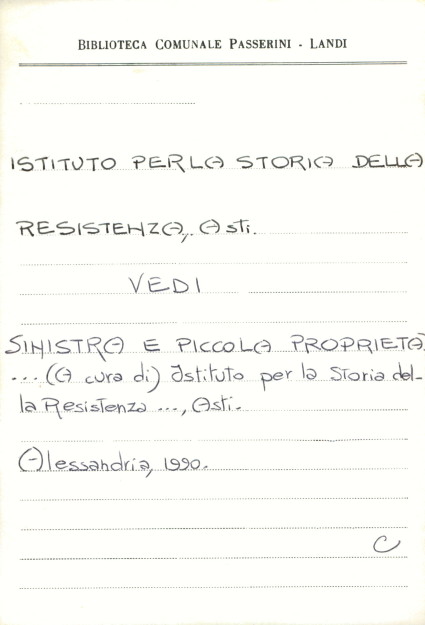 BIBLIOTECA COMUNALE PASSERINI - LANDI
ISTITUTO PER LA STORIA DELLA
RESISTENZA, Asti.
VEDI
SINISTRA E PICCOLA PROPRIETA'
... (A cura di) Istituto per la Storia del-
la Resistenza ..., Asti.
Alessandria, 1990.
C